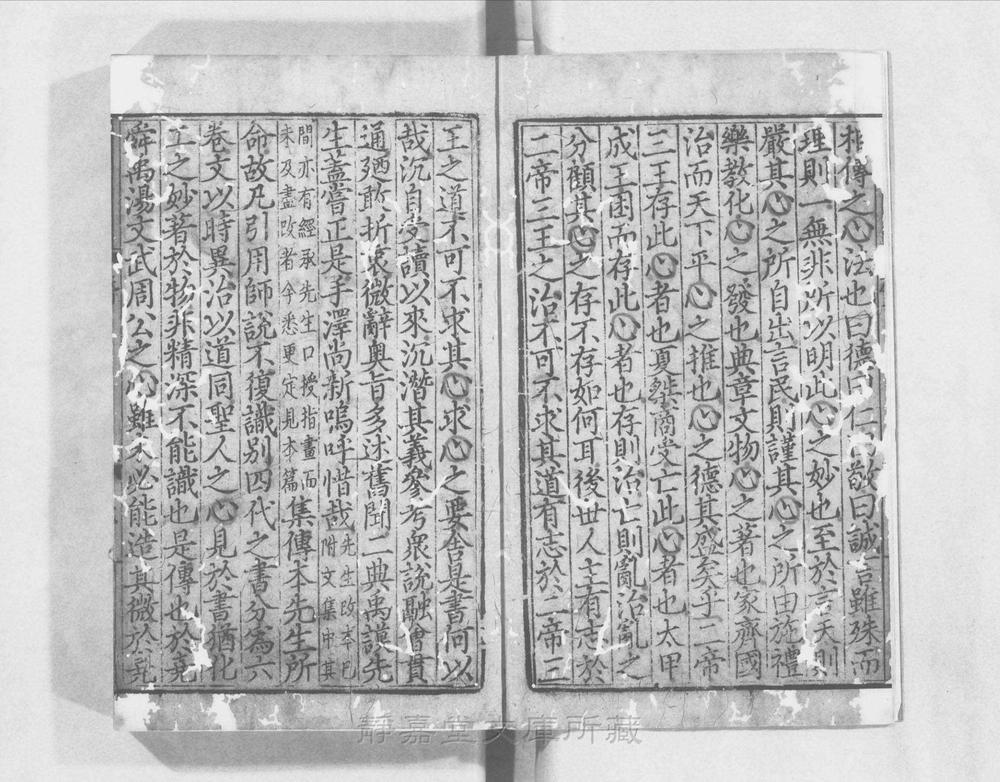 相傳之心法也曰德曰仁曰敬曰誠言雖殊而
理則一無非所以明此心之妙也至於言天則
嚴其心之所自出言民則謹其心之所由施禮
樂教化心之發也典章文物心之著也家齊國
治而天下平心之推也心之德其盛矣乎二帝
三王存此心者也夏桀商受亡此心者也太甲
成王困而存此心者也存則治亡則亂治亂之
分顧其心之存不存如何耳後世人主有志於
二帝三王之治不可不求其道有志於二帝三
王之道不可不求其心求心之要舍是書何以
哉沉自受讀以來沉潛其義參考衆說融會貫
通廼敢折衷微辭奥旨多述舊聞二典禹謨先
生蓋嘗正是手澤尚新嗚呼惜哉先生改本已附文集中其
間亦有經承先生口授指畫而未及盡改者今悉更定見本篇集傳本先生所
命故凡引用師說不復識别四代之書分爲六
卷文以時異治以道同聖人之心見於書猶化
工之妙著於物非精深不能識也是傳也於堯
舜禹湯文武周公之心雖未必能造其微於堯
靜嘉堂文庫所藏